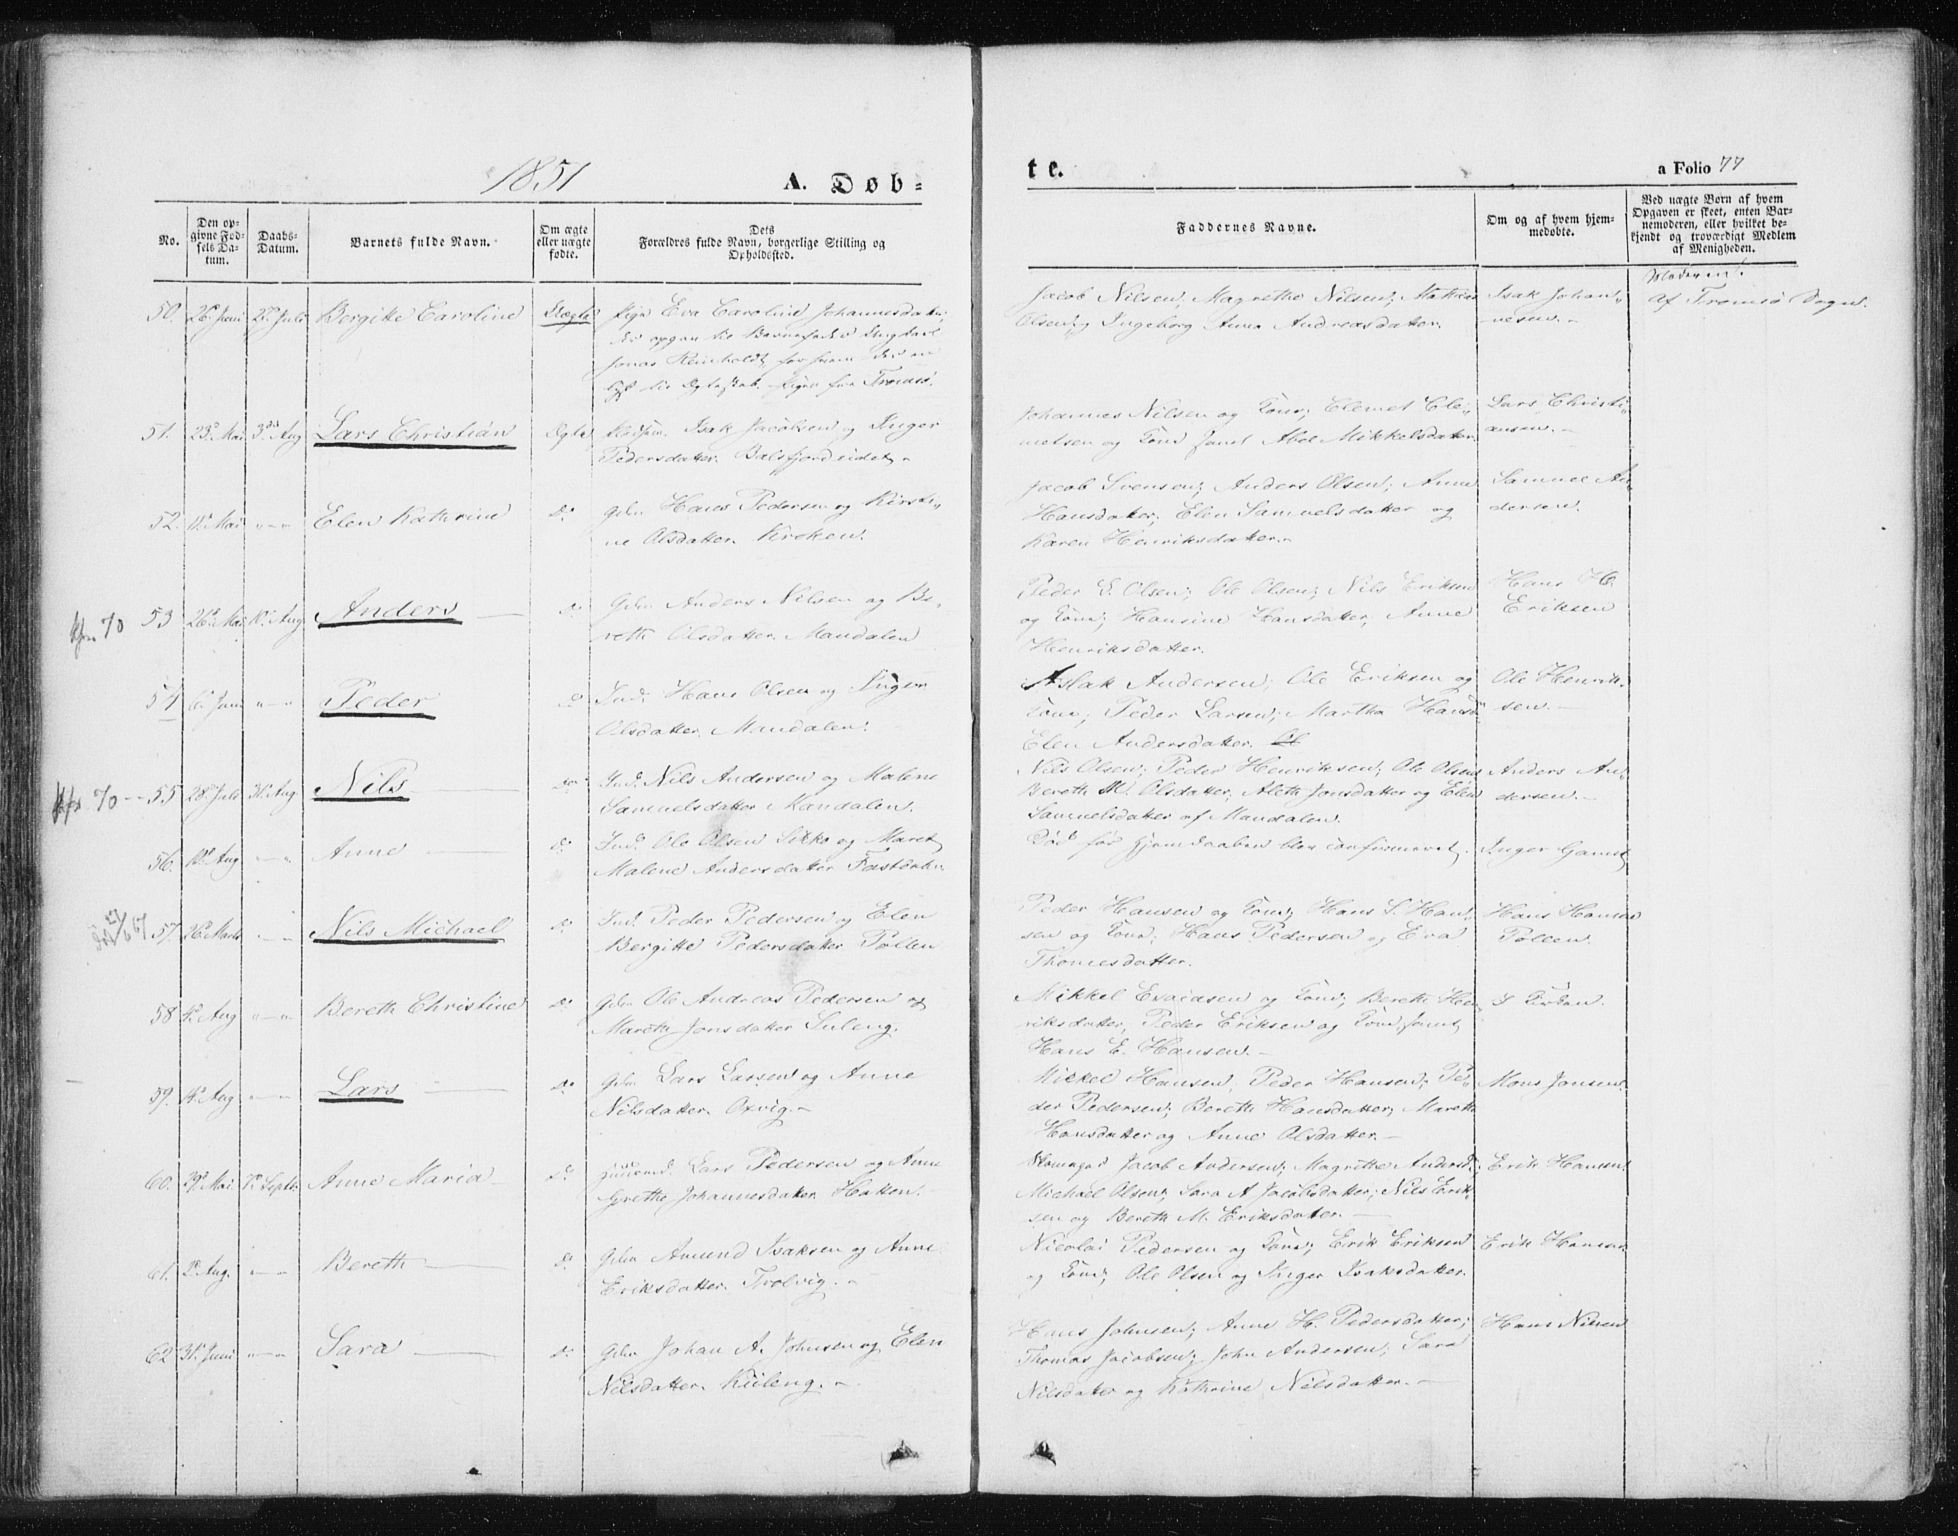 1851
A. Døb-
te.
a Folio 77
No.
Den op-
givne Fød-
sels Da-
tum.
Daabs-
Datum.
Barnets fulde Navn.
Om ægte
eller uægte
fødte.
Dets
Forældres fulde Navn, borgerlige Stilling og
Opholdssted.
Faddernes Navne.
Om og af hvem hjem-
medøbte.
Ved uægte Børn af hvem
Opgaven er skeet, enten Bar-
nemoderen, eller hvilket be-
kjendt og troværdigt Medlem
af Menigheden.
50. 26. Juni 27. Juli Bergitte Caroline Uægte Pige Eva Caroline Johannesdatter,
Jonas Reinholdt
Tromsø.
Jacob Nilsen, Magrethe Nilsen, Mathias
Olsen og Ingeborg Anna Andreasdatter.
Isak Johan-
nesen.
Moderen
af Tromsø Sogn.
51. 23. Mai 3. Aug Lars Christian Ægte Isak Jacobsen og Inger
Pedersdatter. Balsfjordeidet
Johannes Nilsen og Kone, Clemet Cle-
metsen og Kone samt Abel Mikkelsdatter.
Lars Christi-
ansen.
52. 18. Mai Elen Kathrine do Gifte Hans Pedersen og Kirsti-
ne Olsdatter. Kroken.
Jacob Svensen, Anders Olsen, Anne
Hansdatter, Elen Samuelsdatter og
Karen Henriksdatter.
Samuel An-
dersen.
kfn. 70 53 26. Mai 10. Aug Anders do Gifte Anders Nilsen og Be-
reth Olsdatter Mandalen
Peder S. Olsen, Ole Olsen, Nils Eriksen
og Kone, Hansine Hansdatter, Anne
Henriksdatter.
Hans H.
Eriksen
54 6. Juni Peder do Ind. Hans Olsen og Inger
Olsdatter Mandalen.
Aslak Andersen, Ole Eriksen og
Kone, Peder Larsen, Martha Hansd
Elen Andersdatter.
Ole Henrik-
sen.
kfn. 70 55 28. Juli 31. Aug Nils do Ind. Nils Andersen og Malene
Samuelsdatter Mandalen.
Nils Olsen, Peder Henriksen, Ole Olsen
Bereth M. Olsdatter, Aleth Jonsdatter og Elen
Samuelsdatter af Mandalen.
Anders An-
dersen.
56. 10. Aug Anne do Ind. Ole Olsen Sikko og Maret
Malene Andersdatter Fastdalen
Død før Hjemdaaben blev confirmeret.
Inger Gamst
67 57. 26. Marts Nils Michael do Ind. Peder Pedersen og Elen
Bergitte Pedersdatter Pollen
Peder Hansen og Kone, Hans S. Han-
sen og Kone, Hans Pedersen og Eva
Thomesdatter.
Hans Hansen
Pollen.
58 4. Aug Bereth Christine do Gifte Ole Andreas Pedersen og
Mareth Jonsdatter Suleng.
Mikkel Evaldsen og Kone, Bereth Hen-
riksdatter, Peder Eriksen og Kone, samt
Hans E. Hansen.
I Kirken.
59. 14. Aug Lars do Gifte Lars Larsen og Anne
Nilsdatter. Oxvig.
Mikkel Hansen, Peder Hansen, Pe-
der Pedersen, Bereth Hansdatter, Mareth
Hansdatter og Anne Olsdatter.
Mons Jonsen.
60. 29. Mai 7. Septr Anne Maria do Lars Pedersen og Anne
Grethe Johannesdatter Hatten.
Jacob Andersen, Magrethe Andersd
Michael Olsen, Sara A Jacobsdatter, Nils Erik-
sen og Bereth M. Eriksdatter.
Erik Hansen
61. 2. Aug. Bereth do Gifte Amund Isaksen og Anne
Eriksdatter. Trolvig.
Nicolai Pedersen og Kone, Erik Eriksen
og Kone, Ole Olsen og Inger Isaksdatter.
Erik Hansen
62 31. Juni Sara do Gifte Johan A. Johnsen og Elen
Nilsdatter. Kuileng.
Hans Johnsen, Anne H. Pedersdatter,
Thomas Jacobsen, John Andersen, Sara
Nilsdatter og Kathrine Nilsdatter.
Hans Nilsen